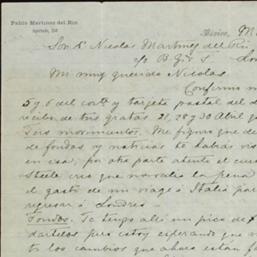 Pablo Martinez del Rio
Apartado
México, M
Sor Dn Nicolas Martinez del Rio
c/o B. G & S. Lon
Mi muy querido Nicolas
Confirmo m
5 y 6 del corte y targeta postal del
recibo de tus gratas 21, 28 y 30 Abril
Seis movimientos. Me figuro que de
de fondos y noticias te habras vis
en esa, por otra parte atento el cur
Steele creo que no valdria la pena
el gasto de un viage á Italia par
regresar á Londres
Fondos. Te tengo alli un pico de
dartelos, pero estoy esperando que m
to los cambios que ahora están f